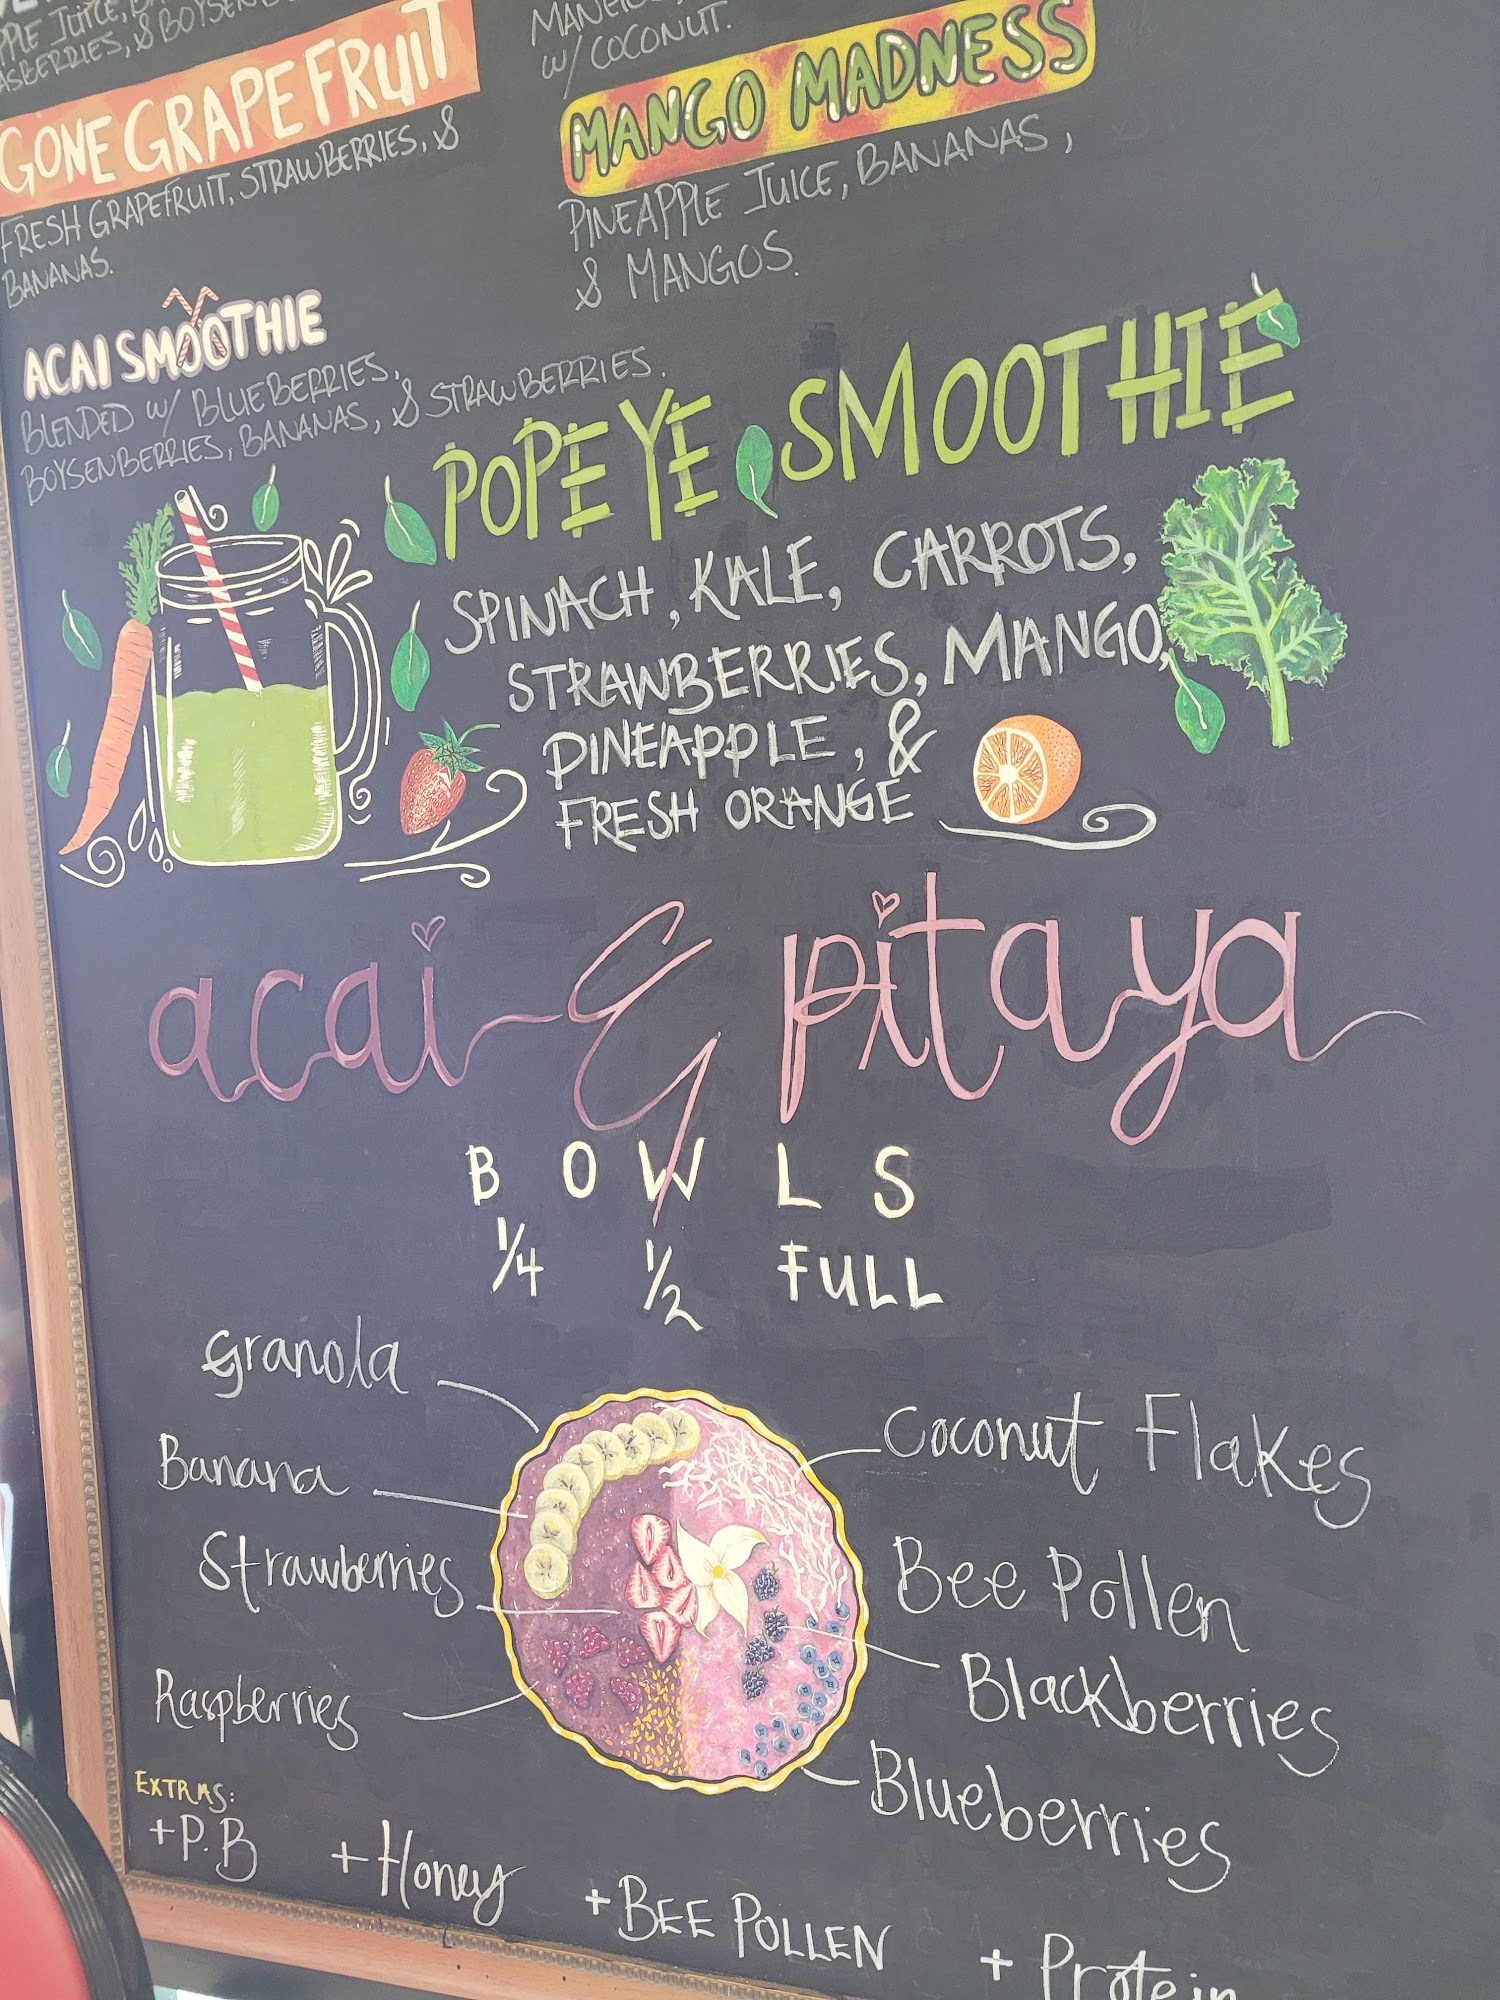 PPLE JUICE,
ASBERRIES, & BOYSENB
GONE GRAPEFRUIT
FRESH GRAPEFRUIT, STRAWBERRIES, &
BANANAS.
W/ COCONUT.
MANGO MADNESS
PINEAPPLE JUICE, BANANAS,
& MANGOS.
ACAI SMOOTHIE
BLENDED W/ BLUEBERRIES,
BOYSENBERRIES, BANANAS, & STRAWBERRIES.
POPEYE SMOOTHIE
SPINACH, KALE, CARROTS,
STRAWBERRIES, MANGO,
PINEAPPLE, &
FRESH ORANGE
acai & pitaya
BOWLS
1/4 1/2 FULL
Granola
Banana
Strawberries
Raspberries
Coconut Flakes
Bee Pollen
Blackberries
Blueberries
EXTRAS:
+P.B +Honey +BEE POLLEN + Protein